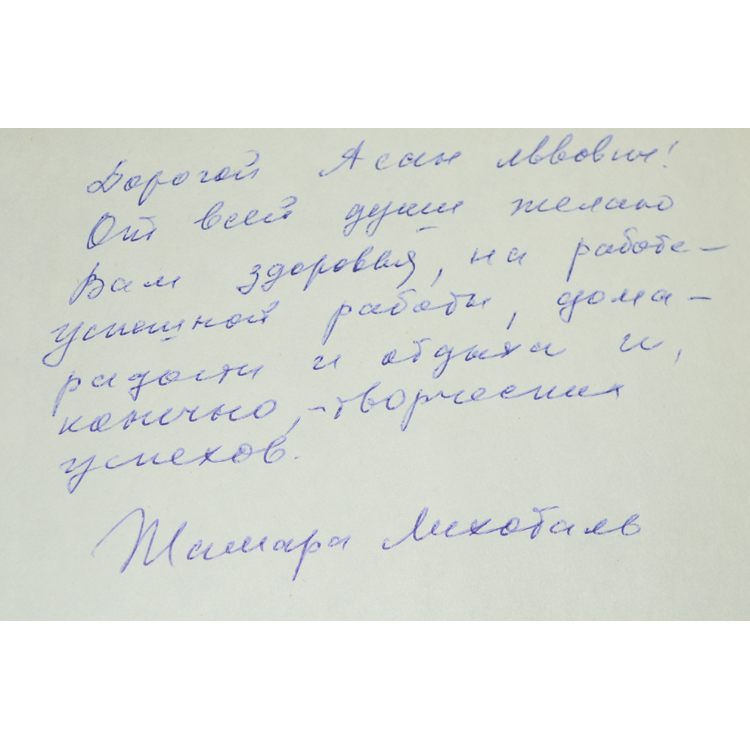 Дорогой Асан Львович!
От всей души желаю
Вам здоровья, на работе –
успешной работы, дома –
радости и отдыха и,
конечно, – творческих
успехов.
Тамара Лихоталь